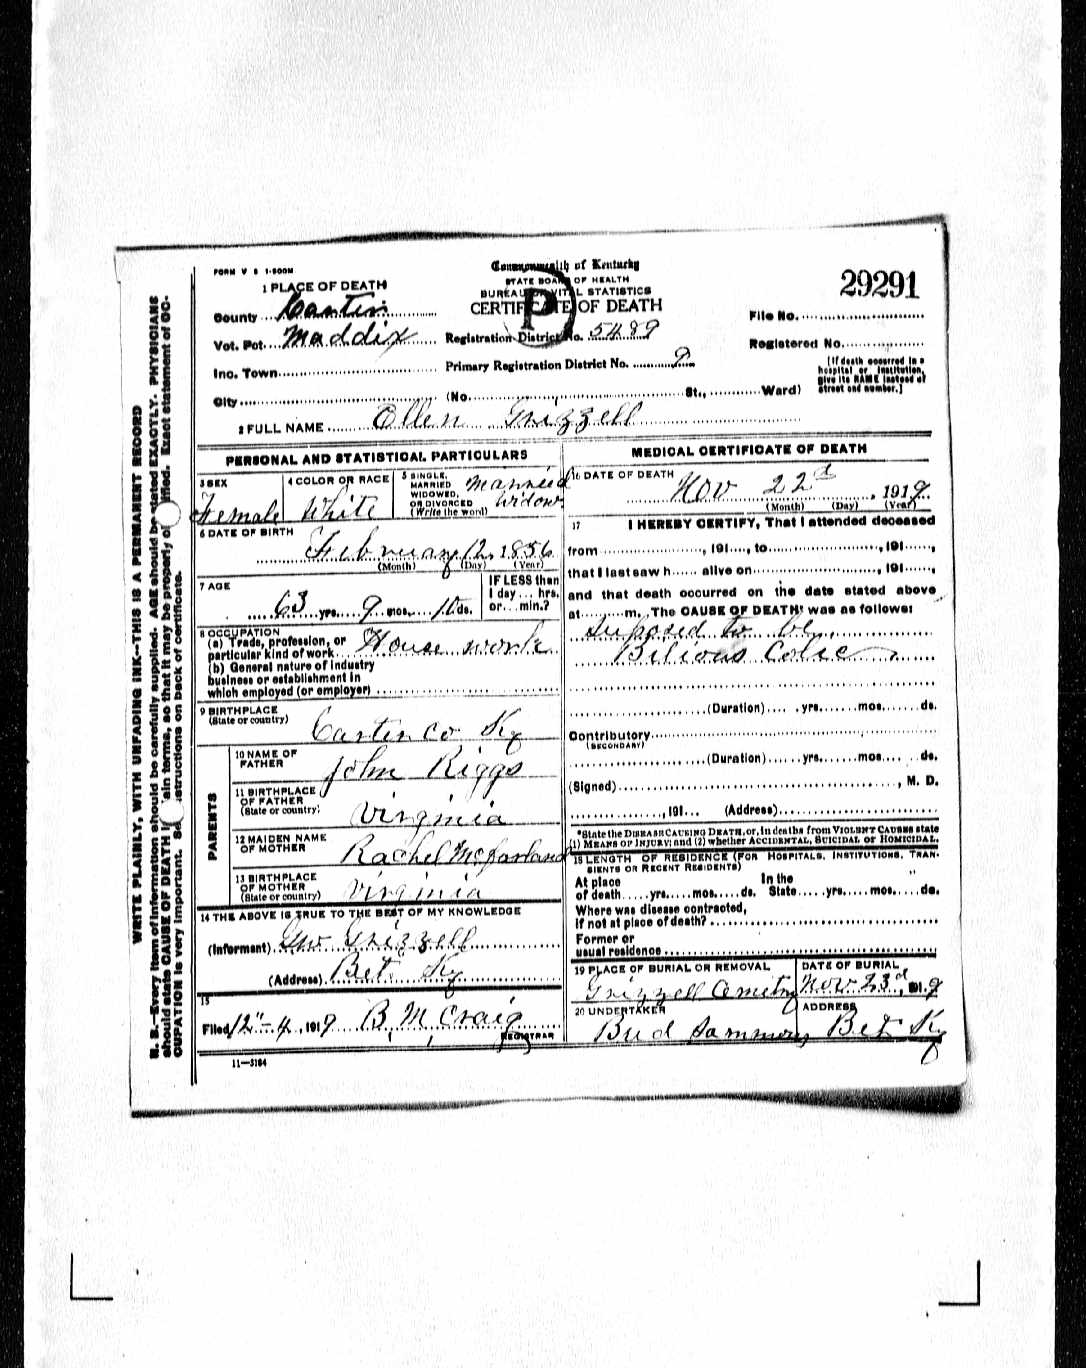 FORM V S 1-500M
Commonwealth of Kentucky
STATE BOARD OF HEALTH
BUREAU OF VITAL STATISTICS
CERTIFICATE OF DEATH
P
29291
1 PLACE OF DEATH
County Carter
Vot. Pct. Maddix
Inc. Town
City
Registration District No. 5489
Primary Registration District No. 9
(No. St., Ward)
File No.
Registered No.
[If death occurred in a
hospital or institution,
give its NAME instead of
street and number.]
2 FULL NAME Ollen Grizzell
PERSONAL AND STATISTICAL PARTICULARS
3 SEX
Female
4 COLOR OR RACE
White
5 SINGLE,
MARRIED
WIDOWED,
OR DIVORCED
(Write the word)
Married
Widow
6 DATE OF BIRTH
February 12, 1856
(Month) (Day) (Year)
7 AGE
63 yrs. 9 mos. 10 ds.
IF LESS than
1 day... hrs.
or... min.?
8 OCCUPATION
(a) Trade, profession, or
particular kind of work House work
(b) General nature of Industry
business or establishment in
which employed (or employer)
9 BIRTHPLACE
(State or country)
Carter co Ky
PARENTS
10 NAME OF
FATHER
John Riggs
11 BIRTHPLACE
OF FATHER
(State or country)
Virginia
12 MAIDEN NAME
OF MOTHER
Rachel McFarland
13 BIRTHPLACE
OF MOTHER
(State or country)
Virginia
14 THE ABOVE IS TRUE TO THE BEST OF MY KNOWLEDGE
(Informant) Gw Grizzell
(Address) Bet Ky
15
Filed 12-4, 1919 B. M. Craig
REGISTRAR
11-3184
MEDICAL CERTIFICATE OF DEATH
16 DATE OF DEATH
Nov 22d, 1919
(Month) (Day) (Year)
17 I HEREBY CERTIFY, That I attended deceased
from , 191...., to , 191....,
that I last saw h...... alive on , 191....,
and that death occurred on the date stated above
at m. The CAUSE OF DEATH* was as follows:
Suposed to be
Bilious Colic
(Duration) yrs. mos. ds.
Contributory
(SECONDARY)
(Duration) yrs. mos. ds.
(Signed) , M. D.
, 191... (Address)
*State the DISEASE CAUSING DEATH, or, in deaths from VIOLENT CAUSES state
(1) MEANS OF INJURY; and (2) whether ACCIDENTAL, SUICIDAL or HOMICIDAL.
18 LENGTH OF RESIDENCE (FOR HOSPITALS, INSTITUTIONS, TRAN-
SIENTS OR RECENT RESIDENTS)
At place
of death yrs. mos. ds.
In the
State yrs. mos. ds.
Where was disease contracted,
if not at place of death?
Former or
usual residence
19 PLACE OF BURIAL OR REMOVAL
Grizzell Cemetry
DATE OF BURIAL
Nov 23d, 1919
20 UNDERTAKER
Bud Sammons
ADDRESS
Bet Ky
WRITE PLAINLY, WITH UNFADING INK--THIS IS A PERMANENT RECORD
N. B.--Every item of information should be carefully supplied. AGE should be stated EXACTLY. PHYSICIANS
should state CAUSE OF DEATH in plain terms, so that it may be properly classified. Exact statement of OC-
CUPATION is very important. See instructions on back of certificate.